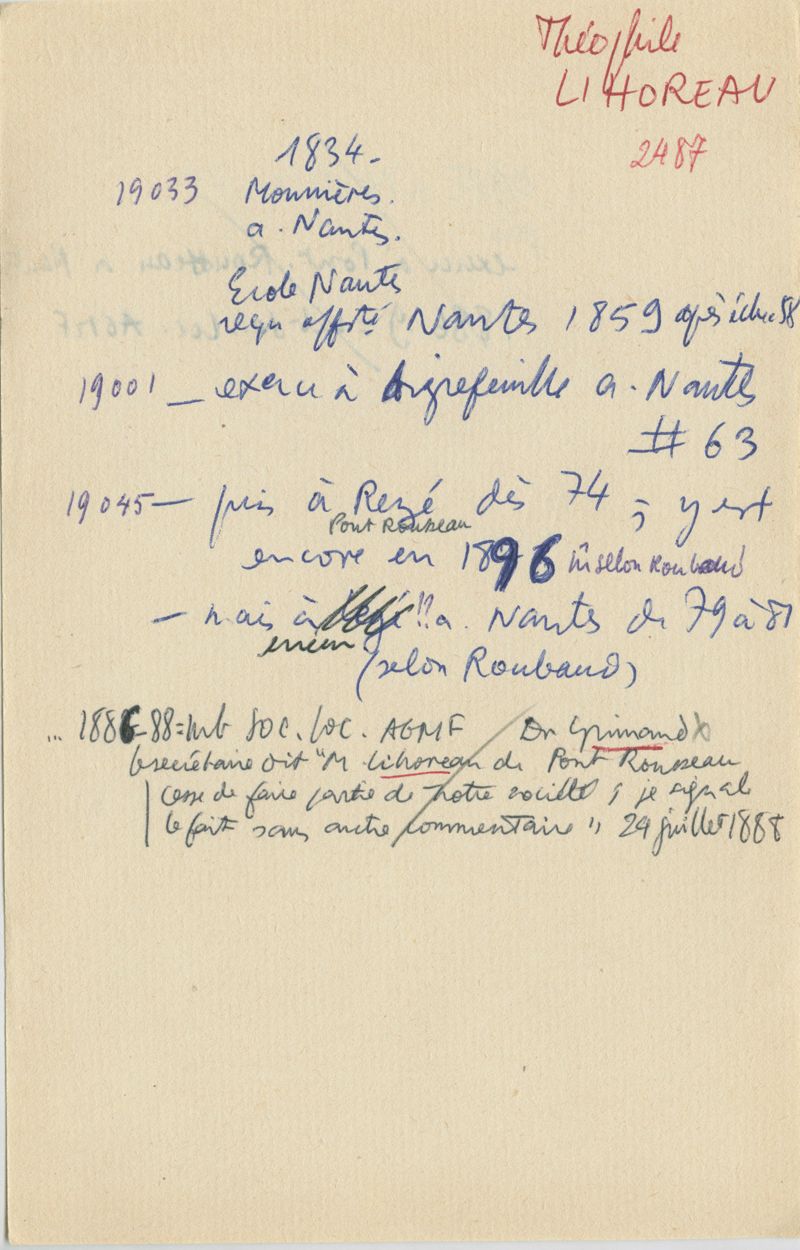 Théophile
LIHOREAU
2487
1834 -
19033 Monnières.
a. Nantes.
Ecole Nantes
reçu offté Nantes 1859 après échec 58
19001 _ exerce à Aigrefeuille a. Nantes
# 63
19045 — puis à Rezé dès 74 ; y est
Pont Rousseau
encore en 1896 selon Roubaud
— mais à !! a. Nantes de 79 à 81
(selon Roubaud)
... 1886-88 = mb SOC. loc. AGMF Dr Grimaud
le secrétaire dit "M Lihoreau de Pont Rousseau
cesse de faire partie de notre société ; je signale
le fait sans autre commentaire" 29 juillet 1888